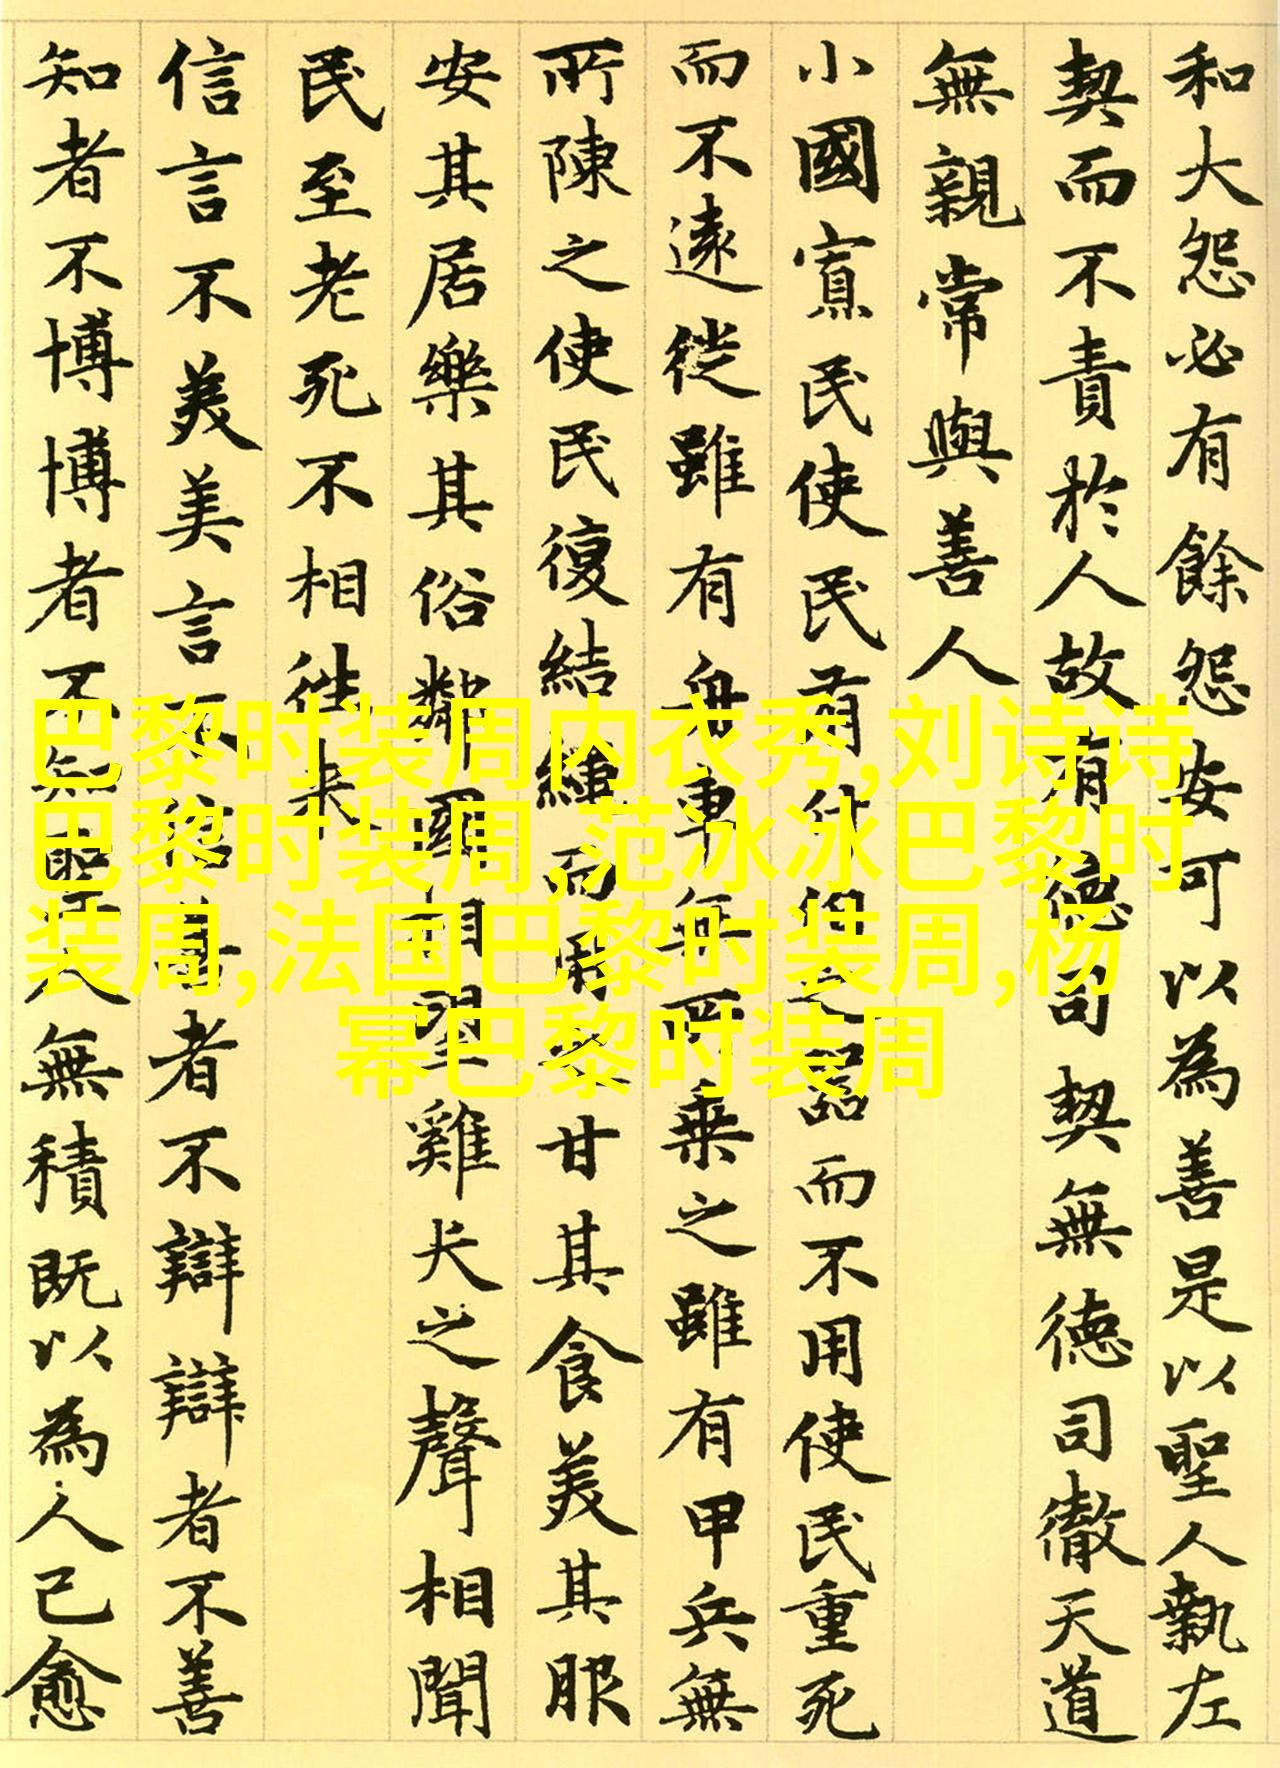 和大怨必有餘怨安可以為善是以聖人執左
契而不責於人故有德司契無德司徹天道
無親常與善人
小國寡民使民有什伯之器而不用使民重死
而不遠徙雖有舟車無所乗之雖有甲兵無
所陳之使民復結繩而用之甘其食美其服
安其居樂其俗鄰國相望雞犬之聲相聞
民至老死不相往来
信言不美美言不信善者不辯辯者不善
知者不博博者不知聖人無積既以為人己愈
巴黎时装周内衣秀,刘诗诗
巴黎时装周,范冰冰巴黎时
装周,法国巴黎时装周,杨
幂巴黎时装周